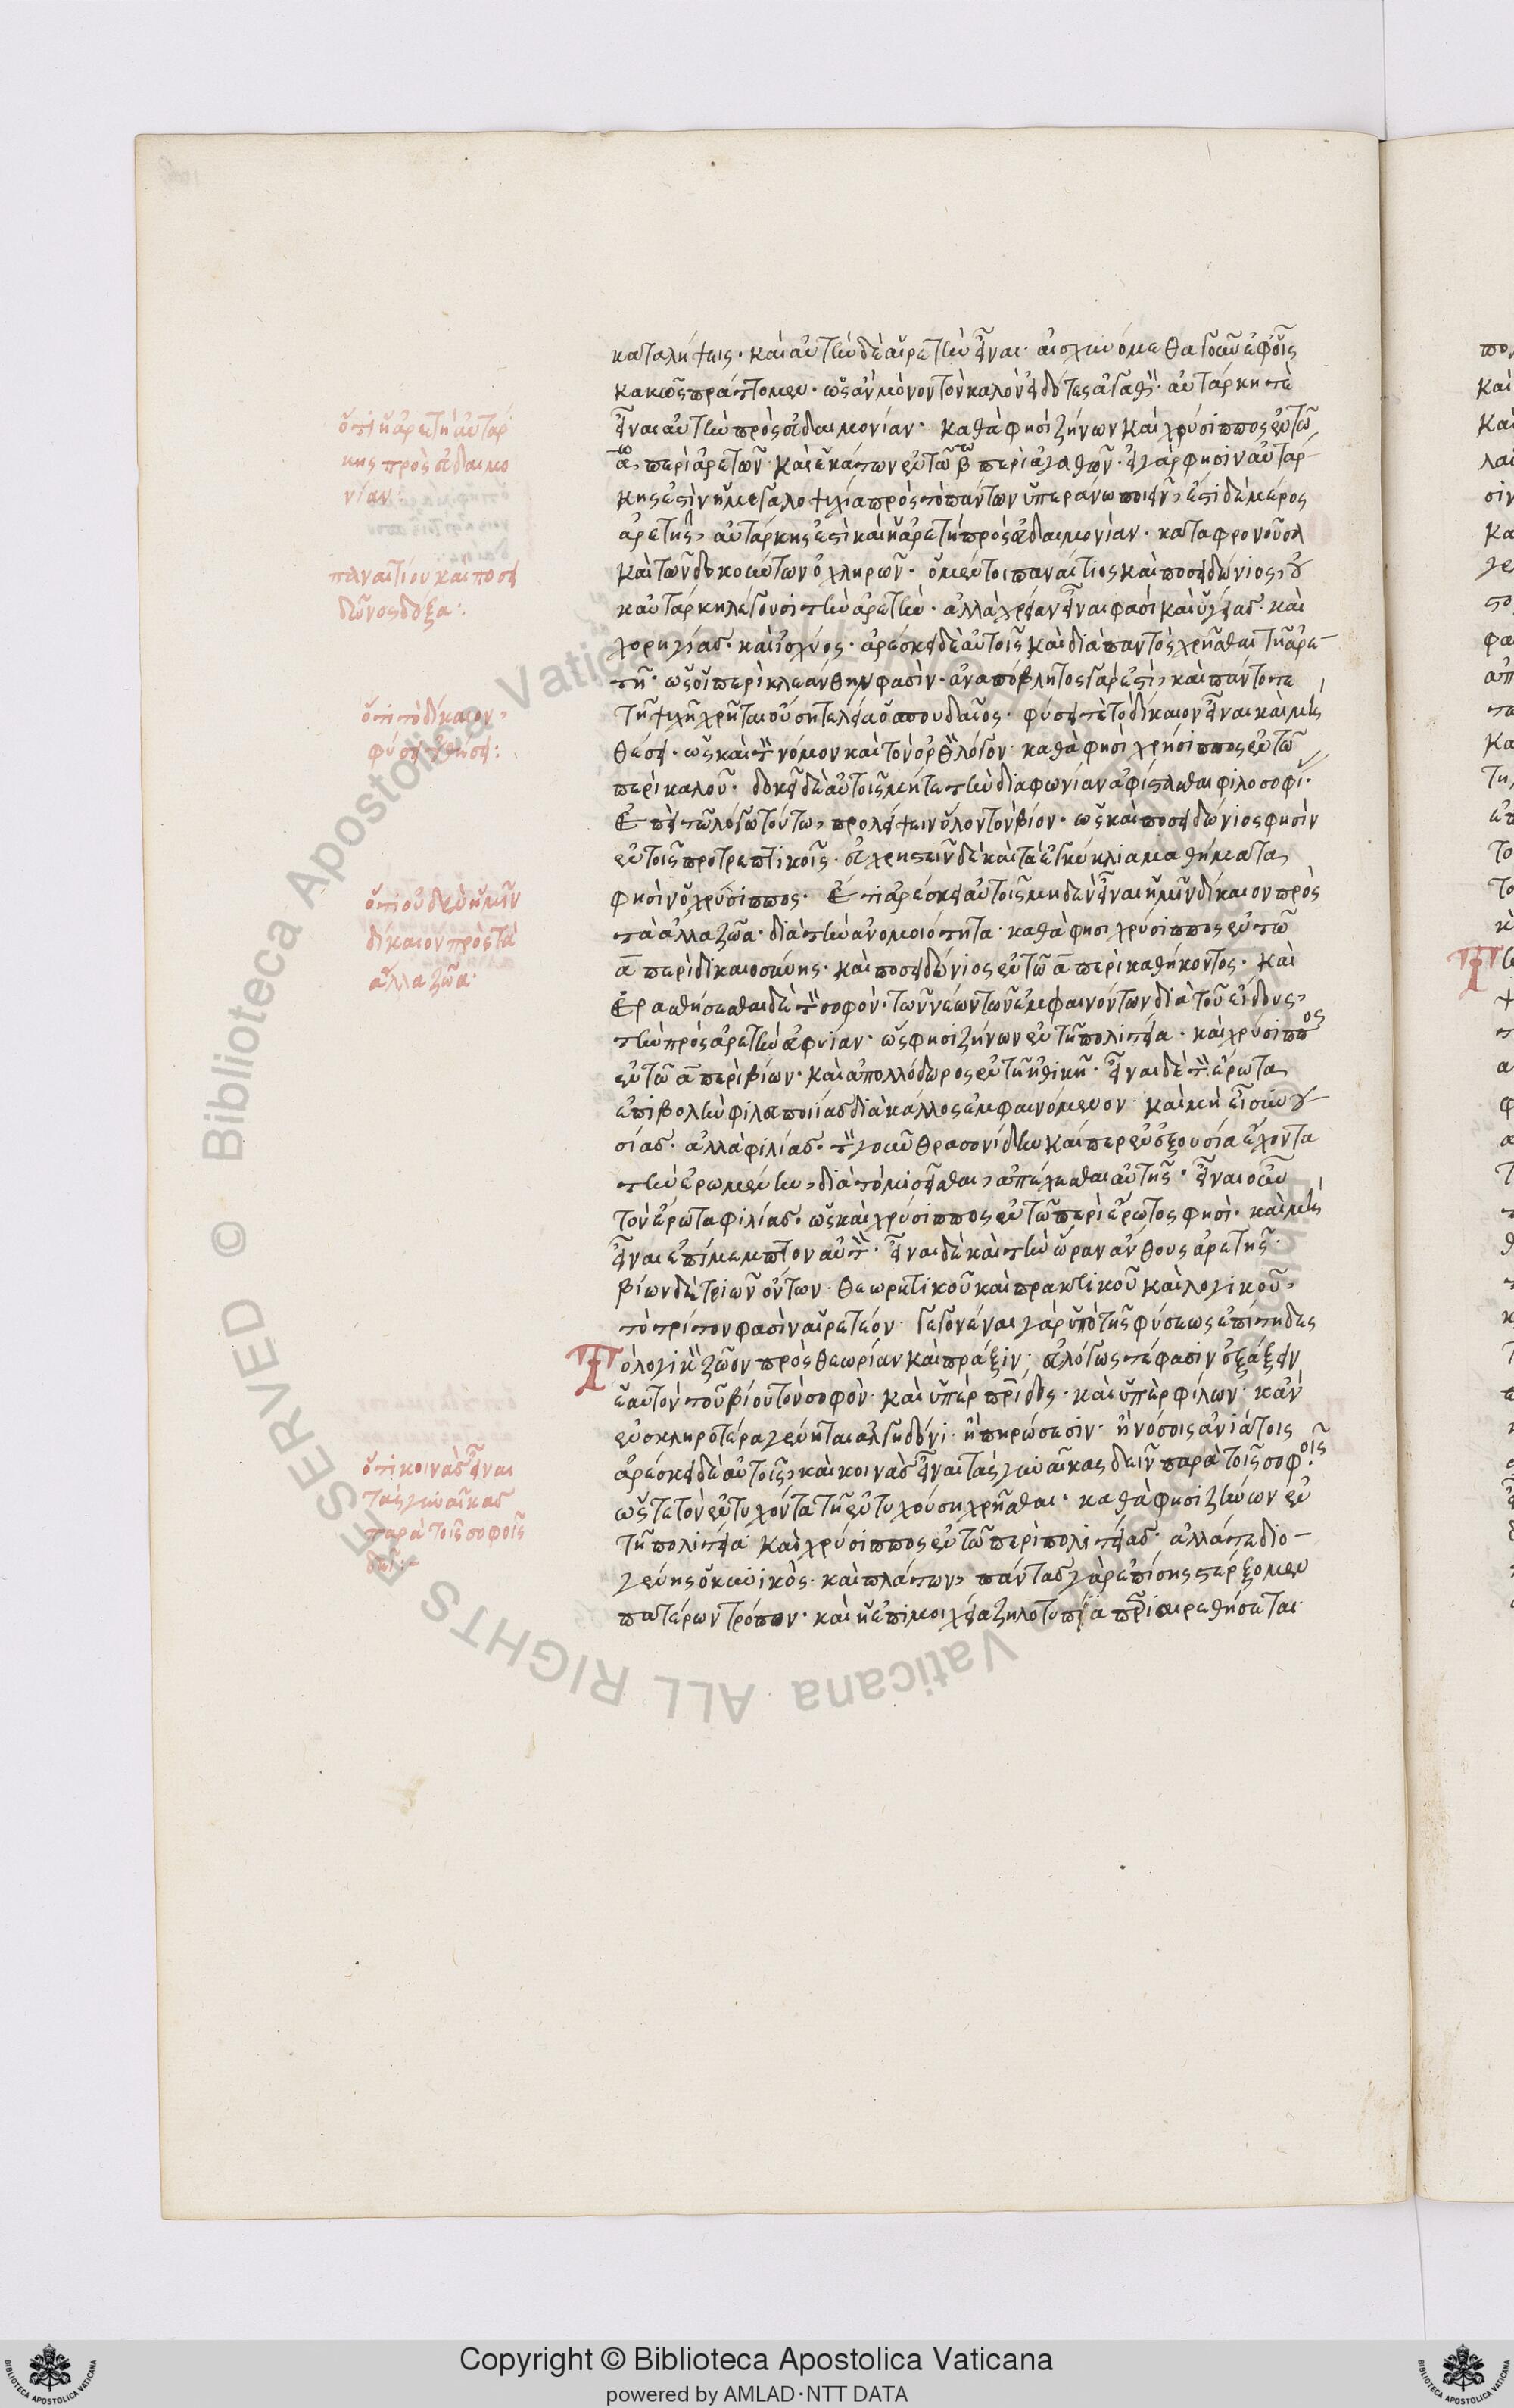 καταλήψεις· καὶ αὐτὴν δὲ αἱρετὴν εἶναι· αἰσχυνόμεθα γοῦν ἐφ' οἷς
κακῶς πράττομεν· ὡς ἂν μόνον τὸν καλὸν εἰδότες ἀγαθὸν· αὐτάρκη τὲ
εἶναι αὐτὴν πρὸς εὐδαιμονίαν· καθά φησι ζήνων καὶ χρύσιππος ἐν τῶ
α^ω περὶ ἀρετῶν· καὶ ἑκάτων ἐν τῶ β^ω περὶ ἀγαθῶν· εἰ γάρ φησιν αὐτάρ-
κης ἐστὶν ἡ μεγαλοψυχία πρὸς τὸ πάντων ὑπεράνω ποιεῖν, ἔστι δὲ μέρος
ἀρετῆς, αὐτάρκης ἐστὶ καὶ ἡ ἀρετὴ πρὸς εὐδαιμονίαν· καταφρονοῦσα
καὶ τῶν δοκούντων ὀχληρῶν· ὁ μέντοι παναίτιος καὶ ποσειδώνιος, οὐ
κ αὐτάρκη λέγουσι τὴν ἀρετὴν· ἀλλὰ χρείαν εἶναι φασὶ καὶ ὑγείας· καὶ
χορηγίας· καὶ ἰσχύος· ἀρέσκει δὲ αὐτοῖς καὶ διὰ παντὸς χρῆσθαι τῆ ἀρε-
τῆ· ὡς οἱ περὶ κλεάνθην φασὶν· ἀναπόβλητος γάρ ἐστὶ, καὶ πάντοτε
τῆ ψυχῆ χρῆται οὔση τελεία ὁ σπουδαῖος· φύσει τὲ τὸ δίκαιον εἶναι καὶ μὴ
θέσει· ὡς καὶ τὸν νόμον καὶ τὸν ὀρθὸν λόγον· καθά φησὶ χρήσιππος ἐν τῶ
περὶ καλοῦ· δοκεῖ δὲ αὐτοῖς μήτε τὴν διαφωνίαν ἀφίστασθαι φιλοσοφί^
Ἐπεὶ τῶ λόγω τούτω, προλείψειν ὅλον τὸν βίον· ὡς καὶ ποσειδώνιος φησὶν
ἐν τοῖς προτρεπτικοῖς· εὐχρηστεῖν δὲ καὶ τὰ ἐγκύκλια μαθήματα,
φησὶν ὁ χρύσιππος· Ἔτι ἀρέσκει αὐτοῖς μηδὲν εἶναι ἡμῖν δίκαιον πρὸς
τὰ ἄλλα ζῶα· διὰ τὴν ἀνομοιότητα· καθά φησι χρύσιππος ἐν τῶ
α περὶ δικαιοσύνης· καὶ ποσειδώνιος ἐν τῶ α περὶ καθήκοντος· καὶ
Ἐρασθήσεσθαι δὲ τὸν σοφὸν· τῶν νέων τῶν ἐμφαινόντων διὰ τοῦ εἴδους,
τὴν πρὸς ἀρετὴν εὐφυίαν· ὥς φησι ζήνων ἐν τῆ πολιτεία· καὶ χρύσιππος
ἐν τῶ α περὶ βίων· καὶ ἀπολλόδωρος ἐν τῆ ἠθικῆ· εἶναι δὲ τὸν ἔρωτα,
ἐπιβολὴν φιλοποιίας διὰ κάλλος ἐμφαινόμενον· καὶ μὴ εἶ συνου
σίας· ἀλλὰ φιλίας· τὸν γοῦν θρασονίδην καίπερ ἐν ἐξουσία ἔχοντα
τὴν ἐρωμένην, διὰ τὸ μισεῖσθαι, ἀπέχεσθαι αὐτῆς· εἶναι οὖν
τὸν ἔρωτα φιλίας· ὡς καὶ χρύσιππος ἐν τῶ περὶ ἔρωτος φησὶ· καὶ μὴ
εἶναι ἐπίμεμπτον αὐτὸν· εἶναι δὲ καὶ τὴν ὥραν ἄνθους ἀρετῆς·
βίων δὲ τριῶν ὄντων· θεωρητικοῦ καὶ πρακτικοῦ καὶ λογικοῦ,
τὸ τρίτον φασὶν αἱρετέον· γεγονέναι γὰρ ὑπὸ τῆς φύσεως ἐπίτηδες
Τὸ λογικὸν ζῶον πρὸς θεωρίαν καὶ πρᾶξιν· εὐλόγως τέ φασιν ἐξάξειν
ἑαυτὸν τοῦ βίου τὸν σοφὸν· καὶ ὑπὲρ πρίδος· καὶ ὑπὲρ φίλων· κἂν
ἐν σκληροτέρα γένηται ἀλγηδόνι· ἢ πηρώσεσιν· ἢ νόσοις ἀνιάτοις
ἀρέσκει δὲ αὐτοῖς, καὶ κοινὰς εἶναι τὰς γυναῖκας δεῖν παρὰ τοῖς σοφοῖς·
ὥστε τὸν ἐντυχόντα τῆ ἐντυχούση χρῆσθαι· καθά φησι ζήνων ἐν
τῆ πολιτεία· καὶ χρύσιππος ἐν τῶ περὶ πολιτείας· ἀλλά τε διο-
γένης ὁ κυνικὸς· καὶ πλάτων, πάντας γὰρ ἐπίσης στέρξομεν
πατέρων τρόπον· καὶ ἡ ἐπὶ μοιχεία ζηλοτυπία πριαιρεθήσεται·
ὅτι ἡ ἀρετὴ αὐτάρ
κης πρὸς εὐδαιμο
νίαν·
παναιτίου καὶ ποσει
δῶνος δόξα:·
ὅτι τὸ δίκαιον,
φύσει οὐ θέσει:
ὅτι οὐδὲν ἡμῖν
δίκαιον πρὸς τὰ
ἄλλα ζῶα·
ὅτι κοινὰς εἶναι
τὰς γυναῖκας
παρὰ τοῖς σοφοῖς
δεῖ:-
© Biblioteca Apostolica Vaticana ALL RIGHTS RESERVED
Copyright © Biblioteca Apostolica Vaticana
powered by AMLAD·NTT DATA
BIBLIOTECA APOSTOLICA VATICANA
BIBLIOTECA APOSTOLICA VATICANA